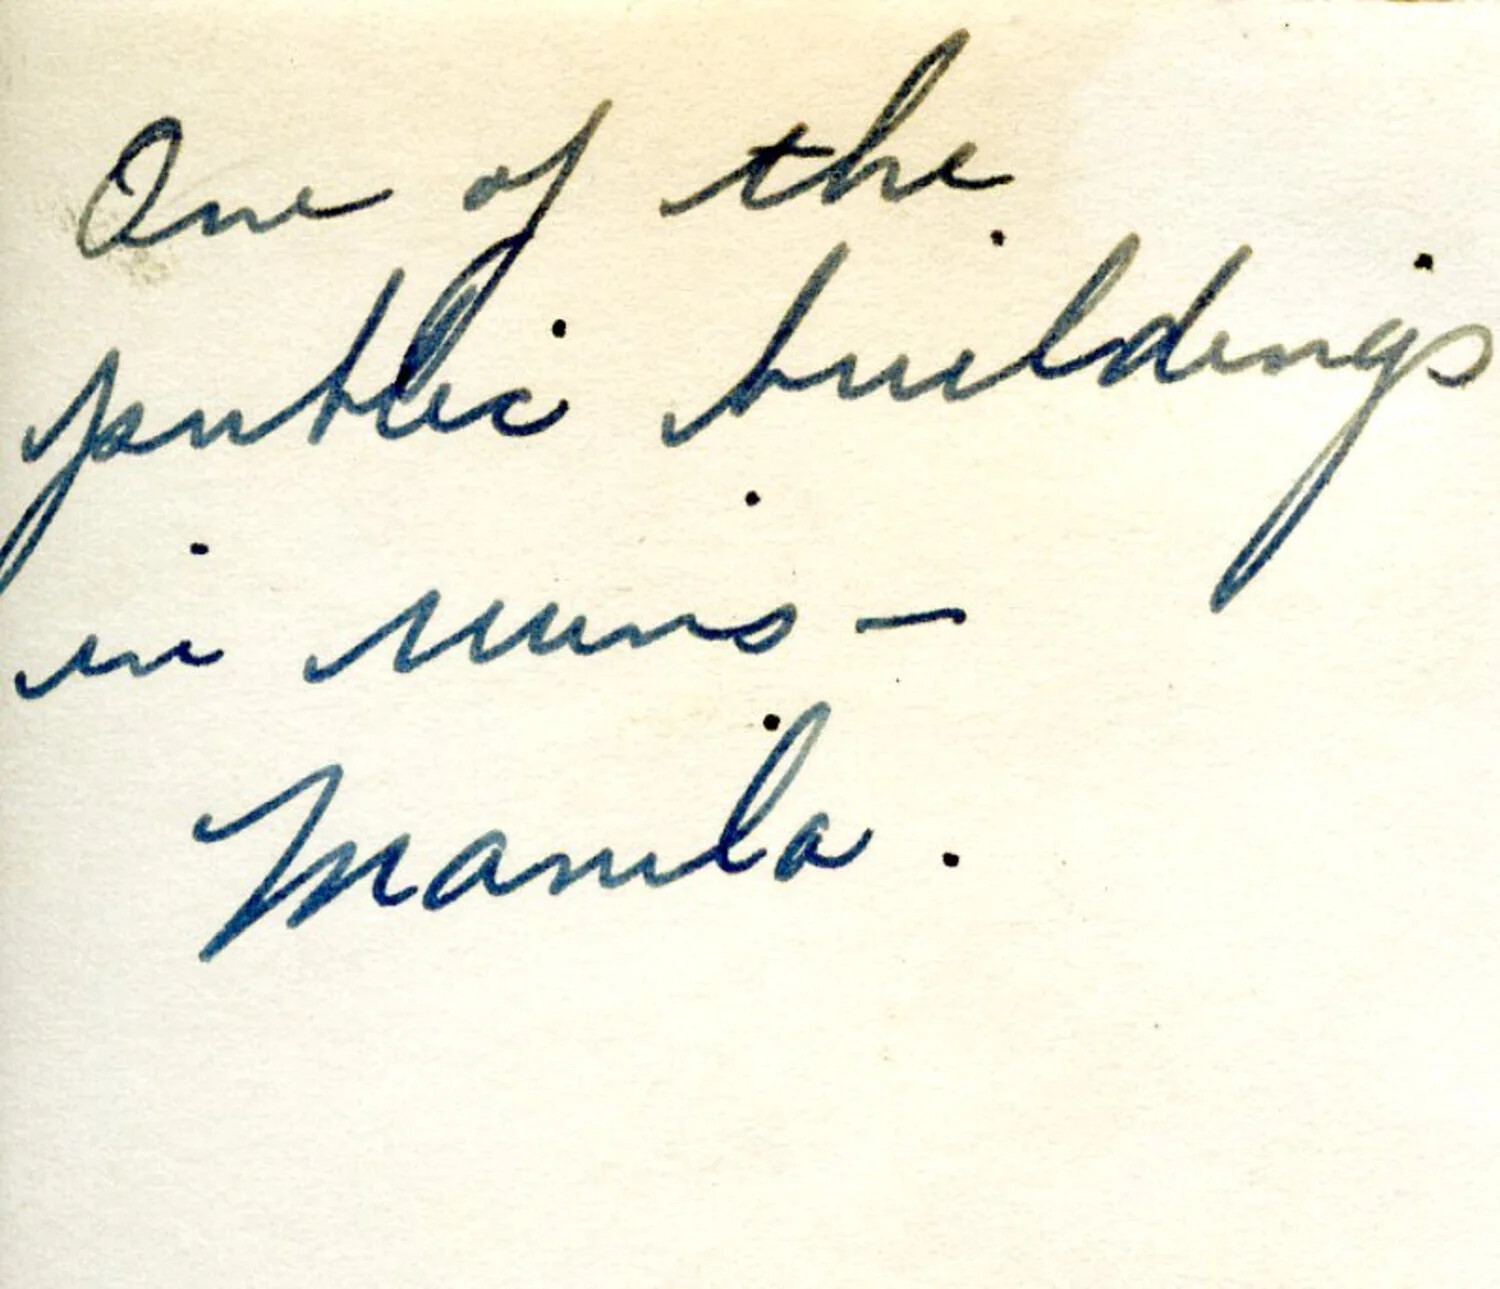 One of the
public buildings
in ruins —
Manila.